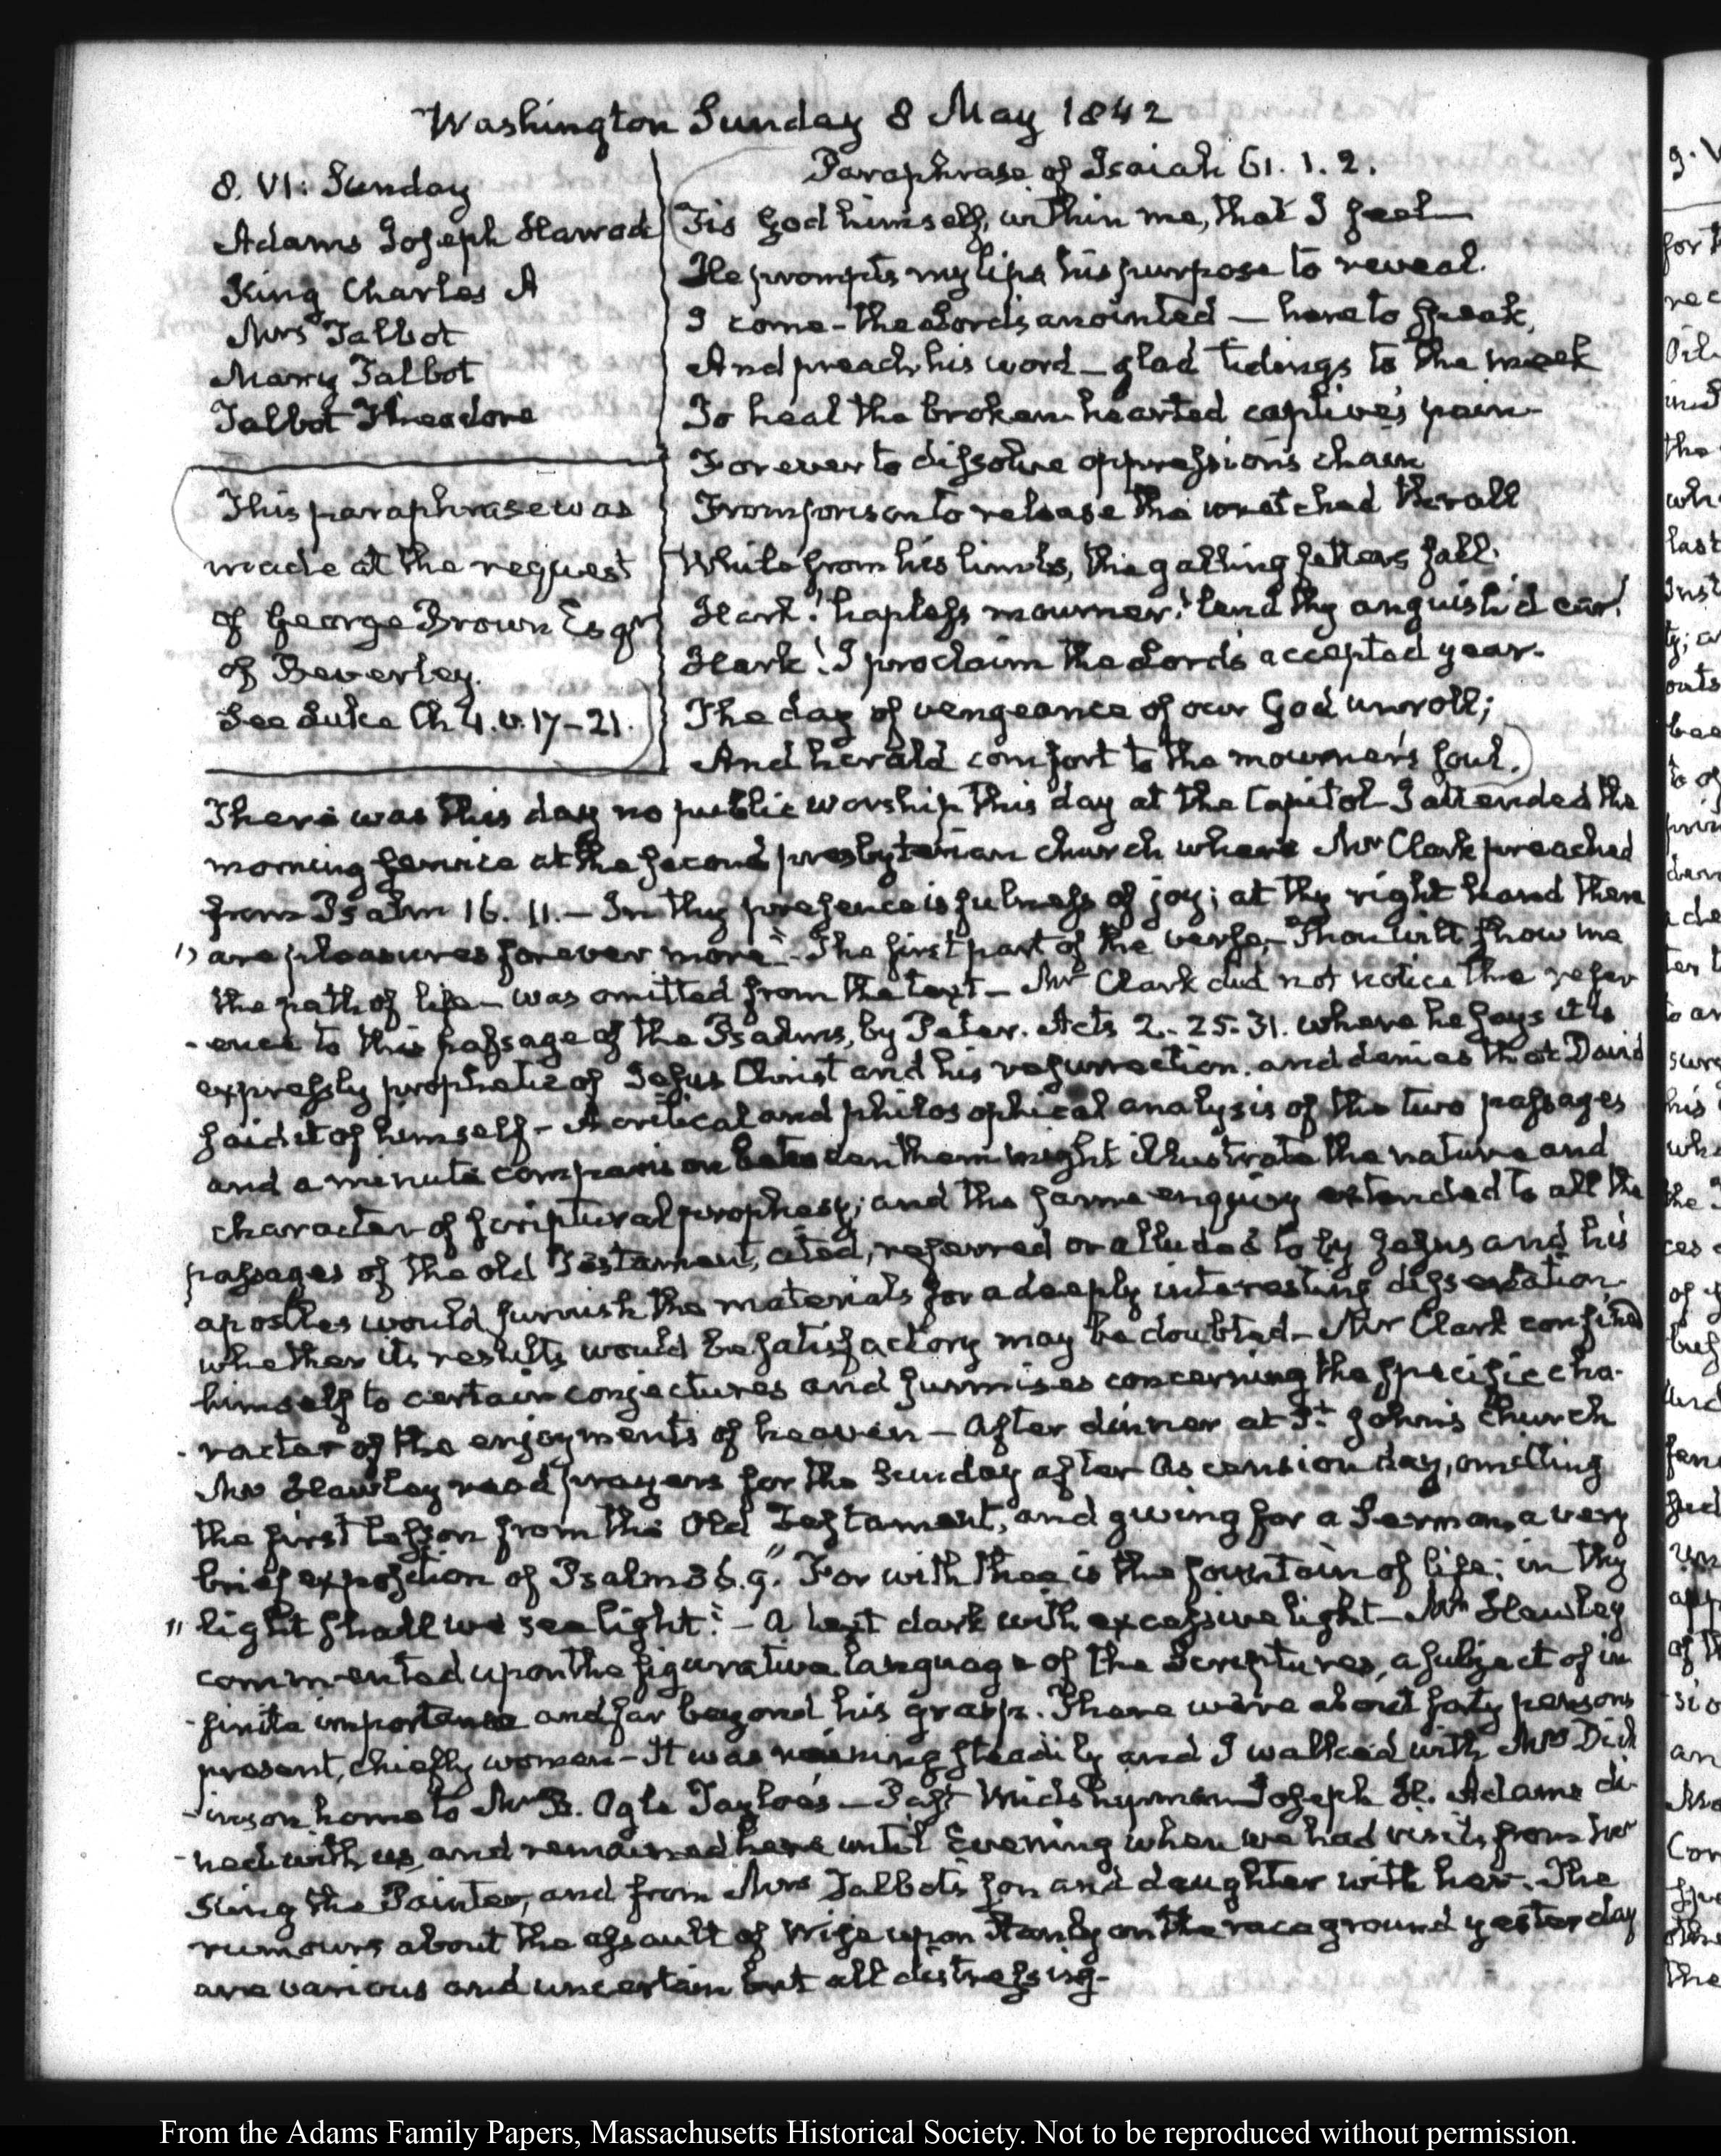 Washington Sunday 8 May 1842
8. VI: Sunday
Adams Joseph Harrod
King Charles A
Mrs Talbot
Mary Talbot
Talbot Theodore
This paraphrase was
made at the request
of George Brown Esqr
of Beverley.
See Luke Ch 4. v. 17-21.
Paraphrase of Isaiah 61. 1. 2.
Tis God himself, within me, that I feel—
He prompts my lips his purpose to reveal.
I come—the Lord's anointed—here to speak,
And preach his word—glad tidings to the meek
To heal the broken hearted captive's pain—
Forever to dissolve oppression's chain
From prison to release the wretched thrall
While from his limbs, the galling fetters fall.
Hark! hapless mourner! lend thy anguish'd ear!
Hark! I proclaim the Lord's accepted year—
The day of vengeance of our God unroll;
And herald comfort to the mourner's soul.
There was this day no public worship this day at the Capitol I attended the
morning service at the second presbyterian church where Mr Clark preached
from Psalm 16. 11.— In thy presence is fulness of joy; at thy right hand there
" are pleasures forever more"— The first part of the verse,— Thou wilt show me
the path of life— was omitted from the text— Mr Clark did not notice the refer
-ence to this passage of the Psalms, by Peter. Acts 2.- 25-31. where he says it is
expressly prophetic of Jesus Christ and his resurrection. and denies that David
said it of himself— A critical and philosophical analysis of the two passages
and a minute comparison between them might illustrate the nature and
character of scriptural prophesy; and the same enquiry extended to all the
passages of the old Testament, cited, referred or alluded to by Jesus and his
apostles would furnish the materials for a deeply interesting dissertation.
whether its results would be satisfactory may be doubted— Mr Clark confined
himself to certain conjectures and surmises concerning the specific cha-
-racter of the enjoyments of heaven— After dinner at St. John's Church
Mr Hawley read prayers for the Sunday after Ascension day, omitting
the first lesson from the Old Testament, and giving for a Sermon, a very
brief exposition of Psalm 36. 9. "For with thee is the fountain of life; in thy
" light shall we see light"— A text dark with excessive light— Mr Hawley
commented upon the figurative language of the Scriptures, a subject of in
-finite importance and far beyond his grasp. There were about forty persons
present, chiefly women— It was raining steadily and I walked with Mrs Dick
-inson home to Mr B. Ogle Tayloe's— Past Midshipman Joseph H. Adams di
-ned with us, and remained here until Evening when we had visits from Mr
King the Painter, and from Mrs Talbot's son and daughter with her. The
rumours about the assault of Wise upon Stanly on the race ground yesterday
are various and uncertain but all distressing—
From the Adams Family Papers, Massachusetts Historical Society. Not to be reproduced without permission.